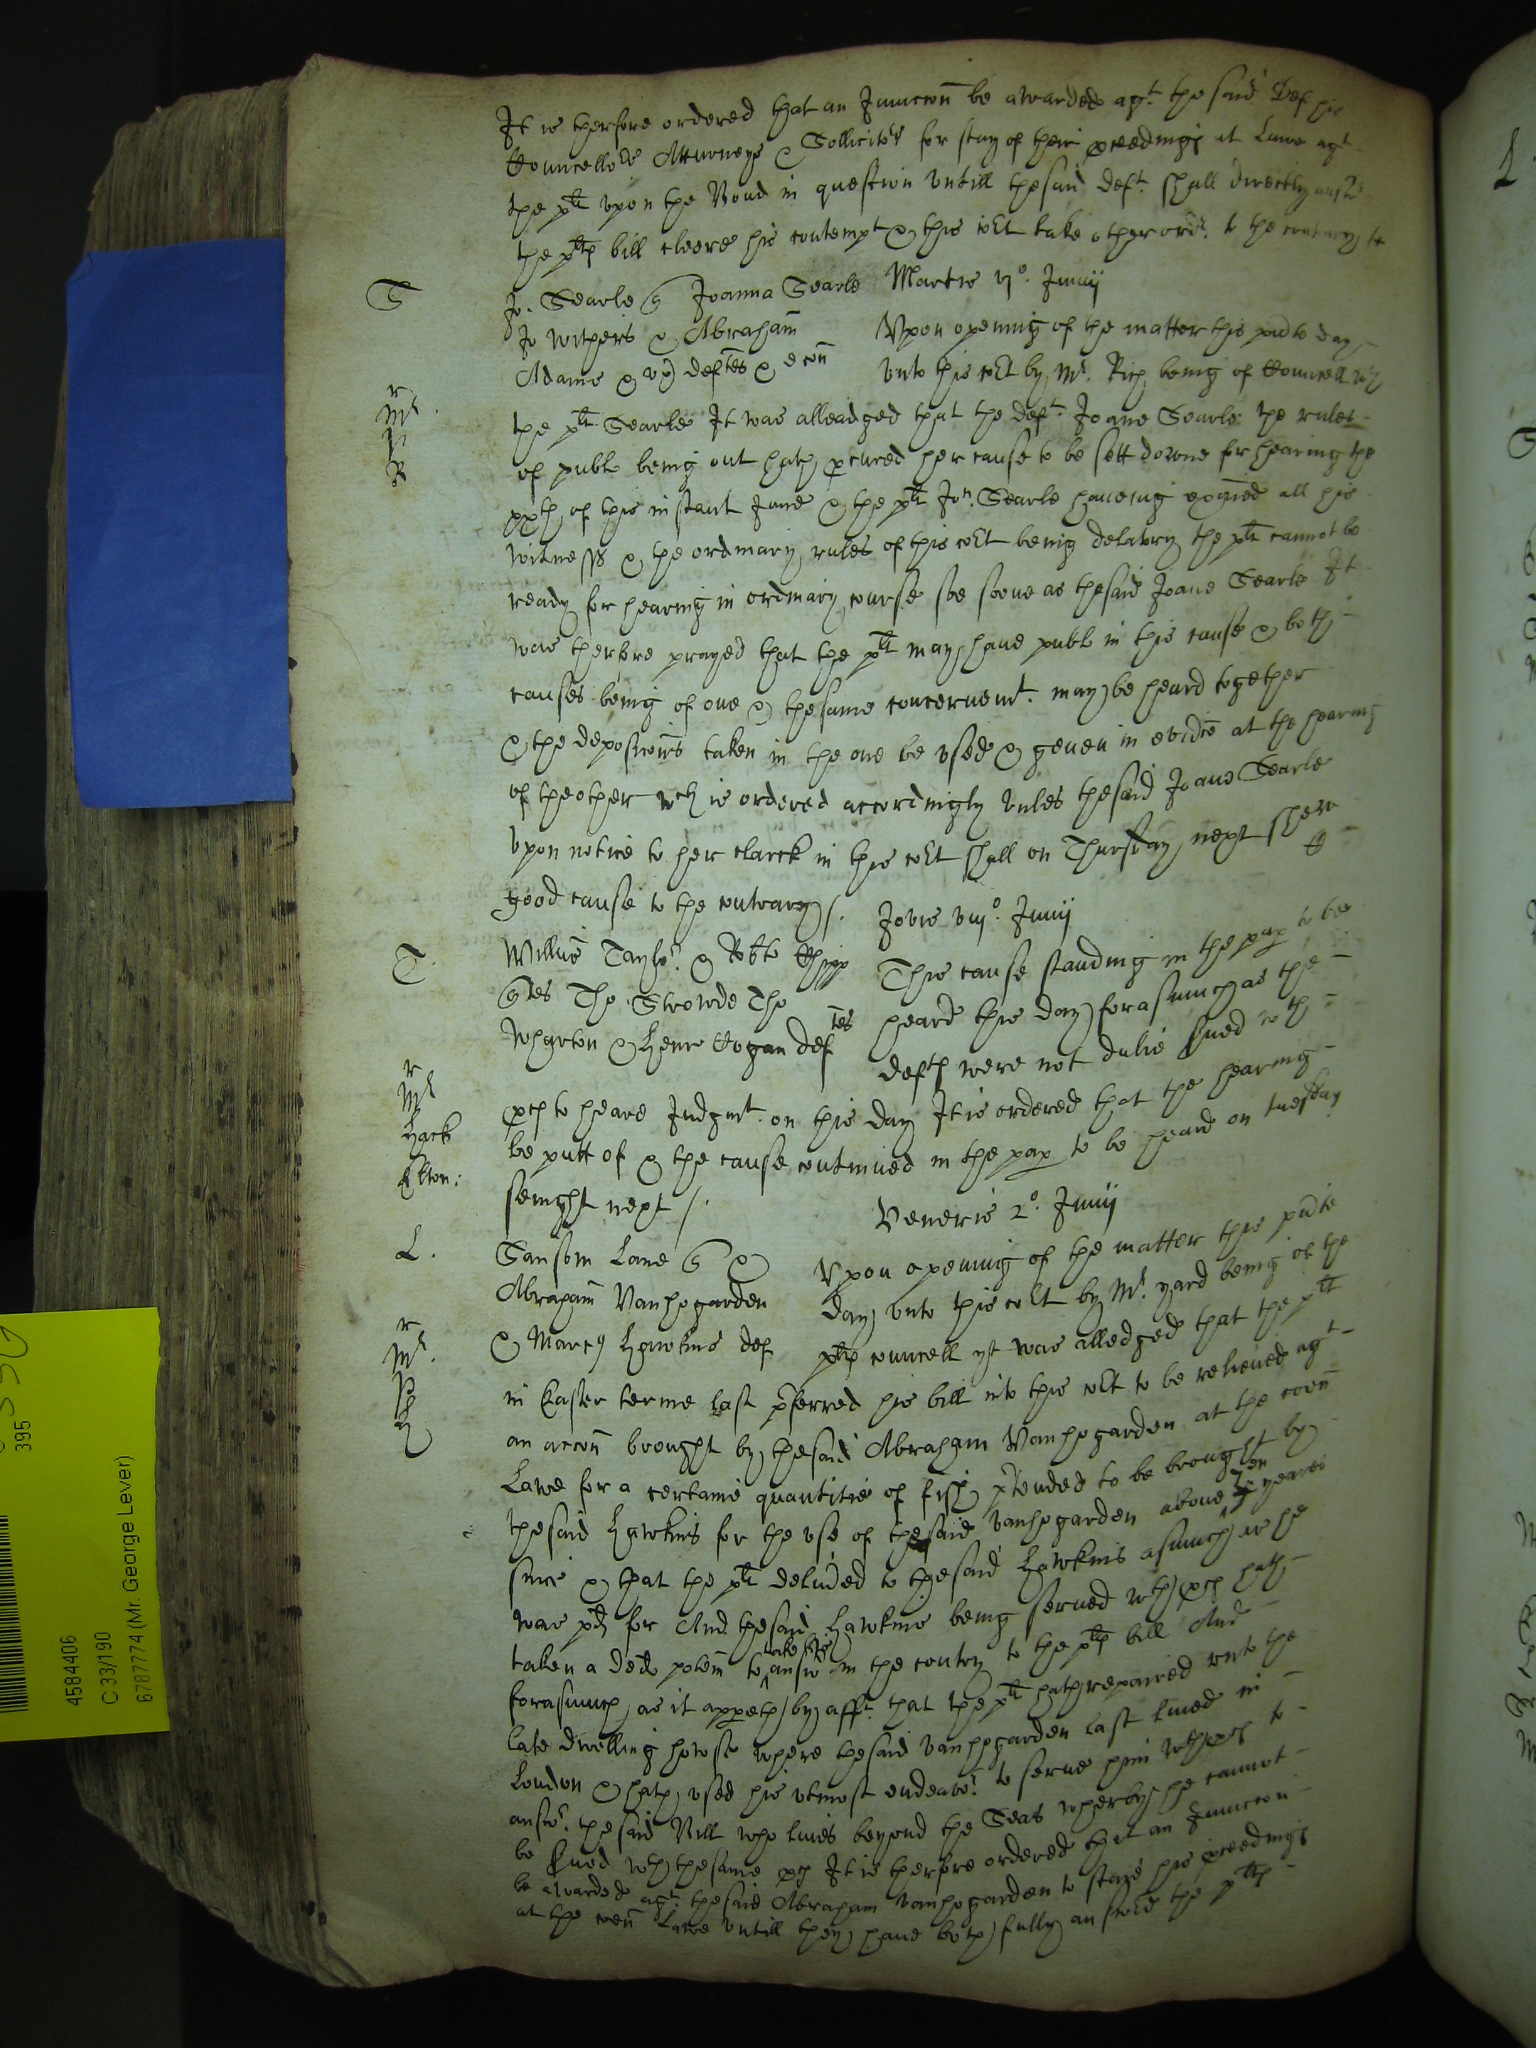 It is therfore ordered that an Iniuncc̃on be awarded agt. the said Def his
Councello:rs Atturneys & Sollicito:rs for stay of their pceedings at Lawe agt
the plt vpon the Bond in question vntill the said Deft. shall directly answ:
the plts bill cleere his contempt & this co:rt take other ord:r to the contrary
S
Jo. Searle q Joanna Searle Martis vjo. Junij
Jo Withers & Abraham̃
Adams & vx) deftes & e con̄
Vpon opening of the matter this p̃nte day
vnto this co:rt by Mr. Rich being of Councell wth
r
Mr.
P
R
the plt Searle It was alleadged that the deft. Joane Searle the rules
of publ being out hath pcured her cause to be sett downe for hearing the
xxth of this instant June & the plt Jon. Searle haueing exãied all his
witnesss & the ordinary rules of this co:rt being delatory the plt cannot be
ready for hearing in ordinary course soe soone as the said Joane Searle It
was therfore prayed that the plt may haue publ in this cause & both
causes being of one & the same concernemt. may be heard together
& the deposicõns taken in the one be vsed & geuen in evidẽce at the hearing
of the other wch is ordered accordingly vnles the said Joane Searle
vpon notice to her clarck in this co:rt shall on Thursday next shew
good cause to the contrary /.
Jovis viijo. Junij
T.
Willm̃ Taylor. & Robte
qtes Tho Strowde Tho
Wharton & Henr Cogan deftes
This cause standing in the pap to be
heard this day forasmuch as the
defts were not dulie serued wth
r
Mr
Hack
Elton:
pces to heare Iudgmt. on this day It is ordered that the hearing
be putt of & the cause continued in the pap to be heard on tuesday
senight next /.
Veneris 2o. Junij
L.
Sansom Lane q &
Abraham̃ Vanhogarden
& Marcy Hawkins def
Vpon opening of the matter this p̃nte
day vnto this co:rt by Mr. yard being of the
plts councell yt was alledged that the plt
r
Mr.
H
in Easter terme last p̃ferred his bill into this co:rt to be relieued agt
an accõn brought by the said Abraham Vanhogarden at the com̃
Lawe for a certaine quantitie of fish p̃tended to be brought by
the said Hawkins for the vse of the said Vanhogarden aboue Ten yeares
since & that the plt deliũed to the said Hawkins asmuch as he
was pd for And the said Hawkins being serued wth pces hath
taken a ded potem̃ to take his answ:r in the contry to the plts bill And
forasmuch as it appeth by afft. that the plt hath repaired vnto the
late dwelling howse where the said Vanhogarden last liued in
London & hath vsed his vtmost endeavo:r. to serue him wth pces to
answ:r. the said Bill who liues beyond the Seas wherby he cannot
be serued wth the same pces It is therfore ordered that an Iniuncc̃on
be awarded agt. the said Abraham Vanhogarden to staie his pceedings
at the com̃ Lawe vntill they haue both fully answ:rd the plts
395
4584406
C 33/190
6787774 (Mr. George Lever)